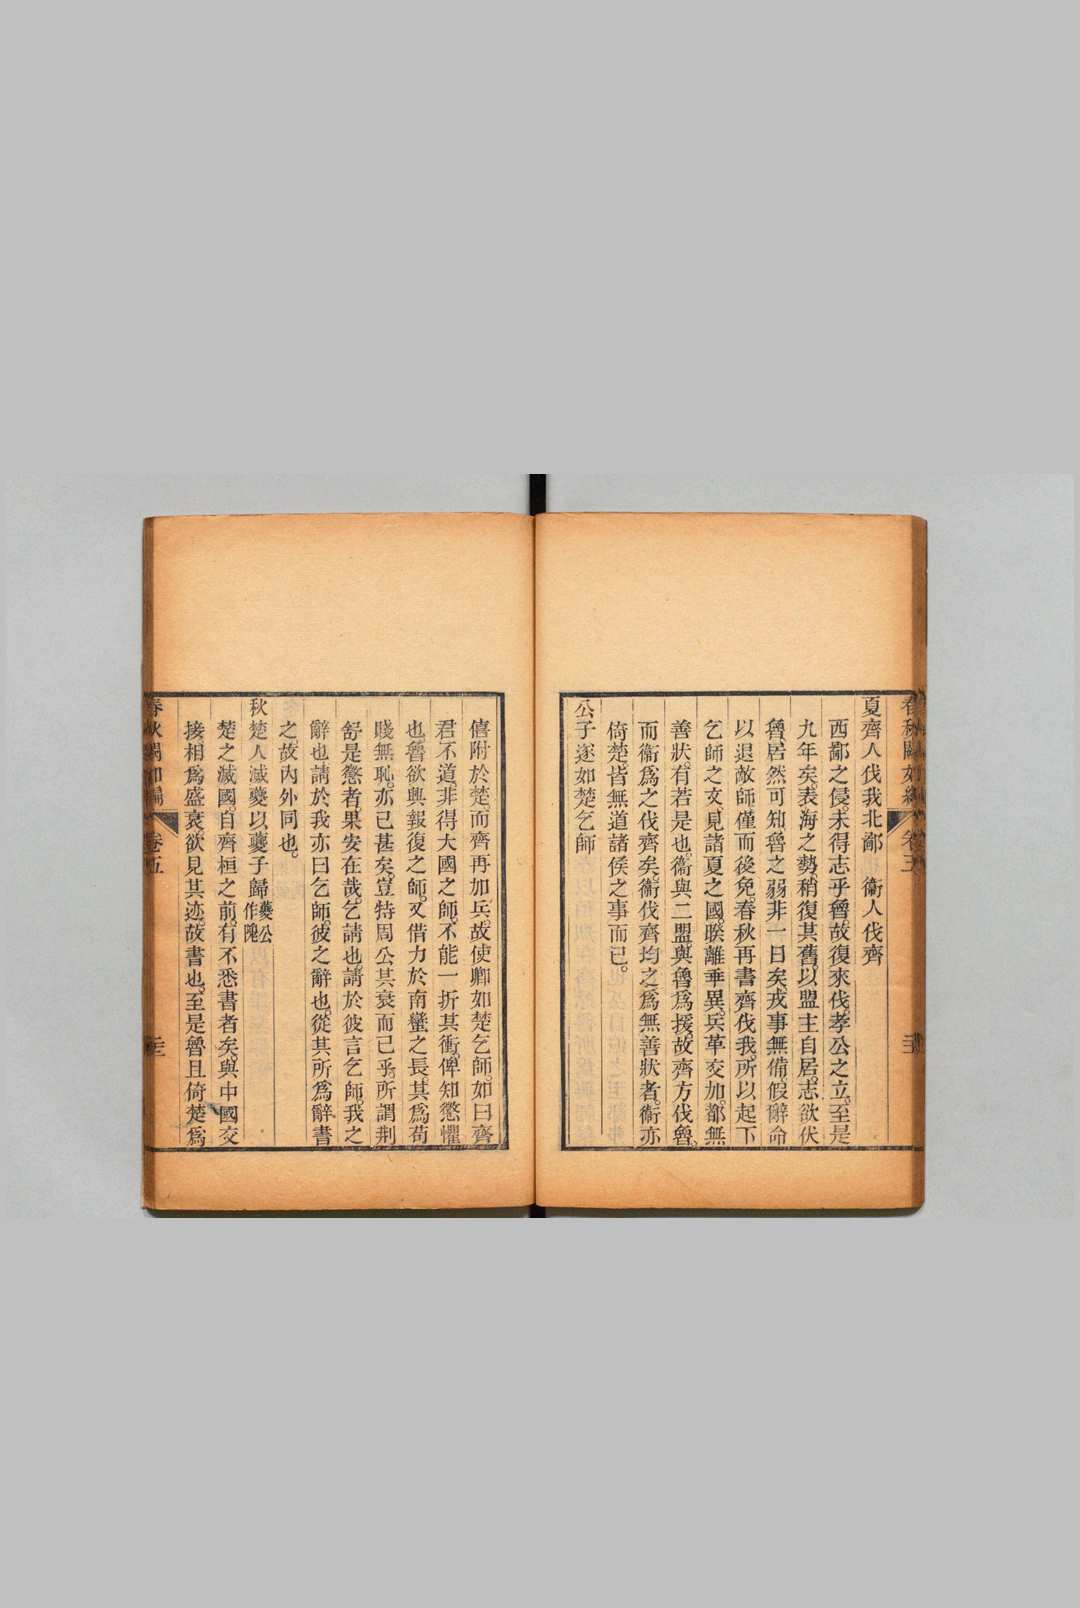 夏齊人伐我北鄙 衞人伐齊
西鄙之侵。未得志乎魯。故復來伐。孝公之立。至是
九年矣。表海之勢。稍復其舊。以盟主自居。志欲伏
魯。居然可知。魯之弱非一日矣。戎事無備。假辭命
以退敵師。僅而後免。春秋再書齊伐我。所以起下
乞師之文。見諸夏之國。睽離乖異。兵革交加。都無
善狀。有若是也。衞與二盟。與魯爲援。故齊方伐魯。
而衞爲之伐齊矣。衞伐齊均之爲無善狀者。衞亦
倚楚。皆無道諸侯之事而已。
公子遂如楚乞師
僖附於楚。而齊再加兵。故使卿如楚乞師。如曰齊
君不道。非得大國之師。不能一折其衝。俾知懲懼
也。魯欲興報復之師。又借力於南蠻之長。其爲苟
賤無恥。亦已甚矣。豈特周公其衰而已乎。所謂荆
舒是懲者。果安在哉。乞請也。請於彼言乞師。我之
辭也。請於我亦曰乞師。彼之辭也。從其所爲辭書
之。故內外同也。
秋楚人滅夔以夔子歸夔公作隗
楚之滅國。自齊桓之前。有不悉書者矣。與中國交
接相爲盛衰。欲見其迹。故書也。至是魯且倚楚爲
春秋闕如編 卷五